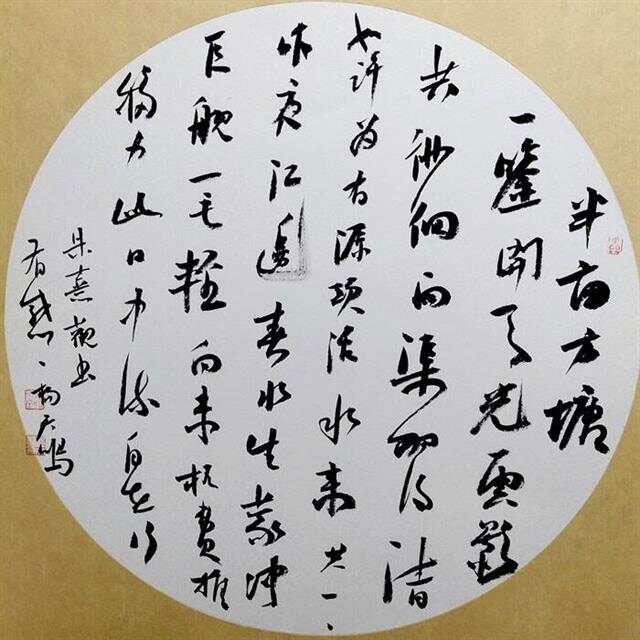 半亩方塘
一鑒開天光雲影
共徘徊问渠那得清
如许为有源頭活水来其一
昨夜江邊春水生蒙冲
巨舰一毛輕向来枉費推
移力此日中流自在行
朱熹觀书
有感